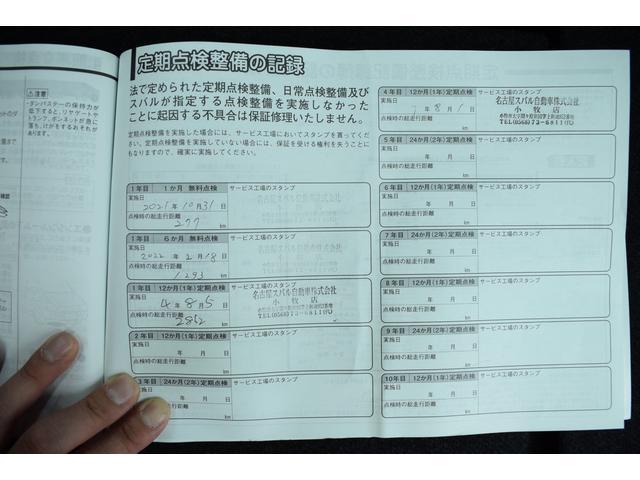 定期点検整備の記録
法で定められた定期点検整備、日常点検整備及び
スバルが指定する点検整備を実施しなかった
ことに起因する不具合は保証修理いたしません。
定期点検整備を実施した場合には、サービス工場においてスタンプを貰ってく
ださい。定期点検整備を実施していない場合には、保証を受ける権利を失うことに
もなりますので、確実に実施してください。
1年目 1か月 無料点検 サービス工場のスタンプ
実施日
2021年10月31日
点検時の総走行距離
277 km
1年目 6か月 無料点検 サービス工場のスタンプ
実施日
2022年2月18日
点検時の総走行距離
1293 km
1年目 12か月(1年)定期点検 サービス工場のスタンプ
実施日
4年8月5日
点検時の総走行距離
2852 km
名古屋スバル自動車株式会社
小牧店
TEL(0568)73-6811㈹
2年目 12か月(1年)定期点検 サービス工場のスタンプ
実施日
年 月 日
点検時の総走行距離
km
3年目 24か月(2年)定期点検 サービス工場のスタンプ
実施日
年 月 日
点検時の総走行距離
km
4年目 12か月(1年)定期点検 サービス工場のスタンプ
実施日
7年8月1日
点検時の総走行距離
km
名古屋スバル自動車株式会社
小牧店
TEL(0568)73-6811㈹
5年目 24か月(2年)定期点検 サービス工場のスタンプ
実施日
年 月 日
点検時の総走行距離
km
6年目 12か月(1年)定期点検 サービス工場のスタンプ
実施日
年 月 日
点検時の総走行距離
km
7年目 24か月(2年)定期点検 サービス工場のスタンプ
実施日
年 月 日
点検時の総走行距離
km
8年目 12か月(1年)定期点検 サービス工場のスタンプ
実施日
年 月 日
点検時の総走行距離
km
9年目 24か月(2年)定期点検 サービス工場のスタンプ
実施日
年 月 日
点検時の総走行距離
km
10年目 12か月(1年)定期点検 サービス工場のスタンプ
実施日
年 月 日
点検時の総走行距離
km
⚠注意
・ダンパステーの保持力が
低下すると、リヤゲートや
トランク、ボンネットが急に
落ち、けがをするおそれが
あります。